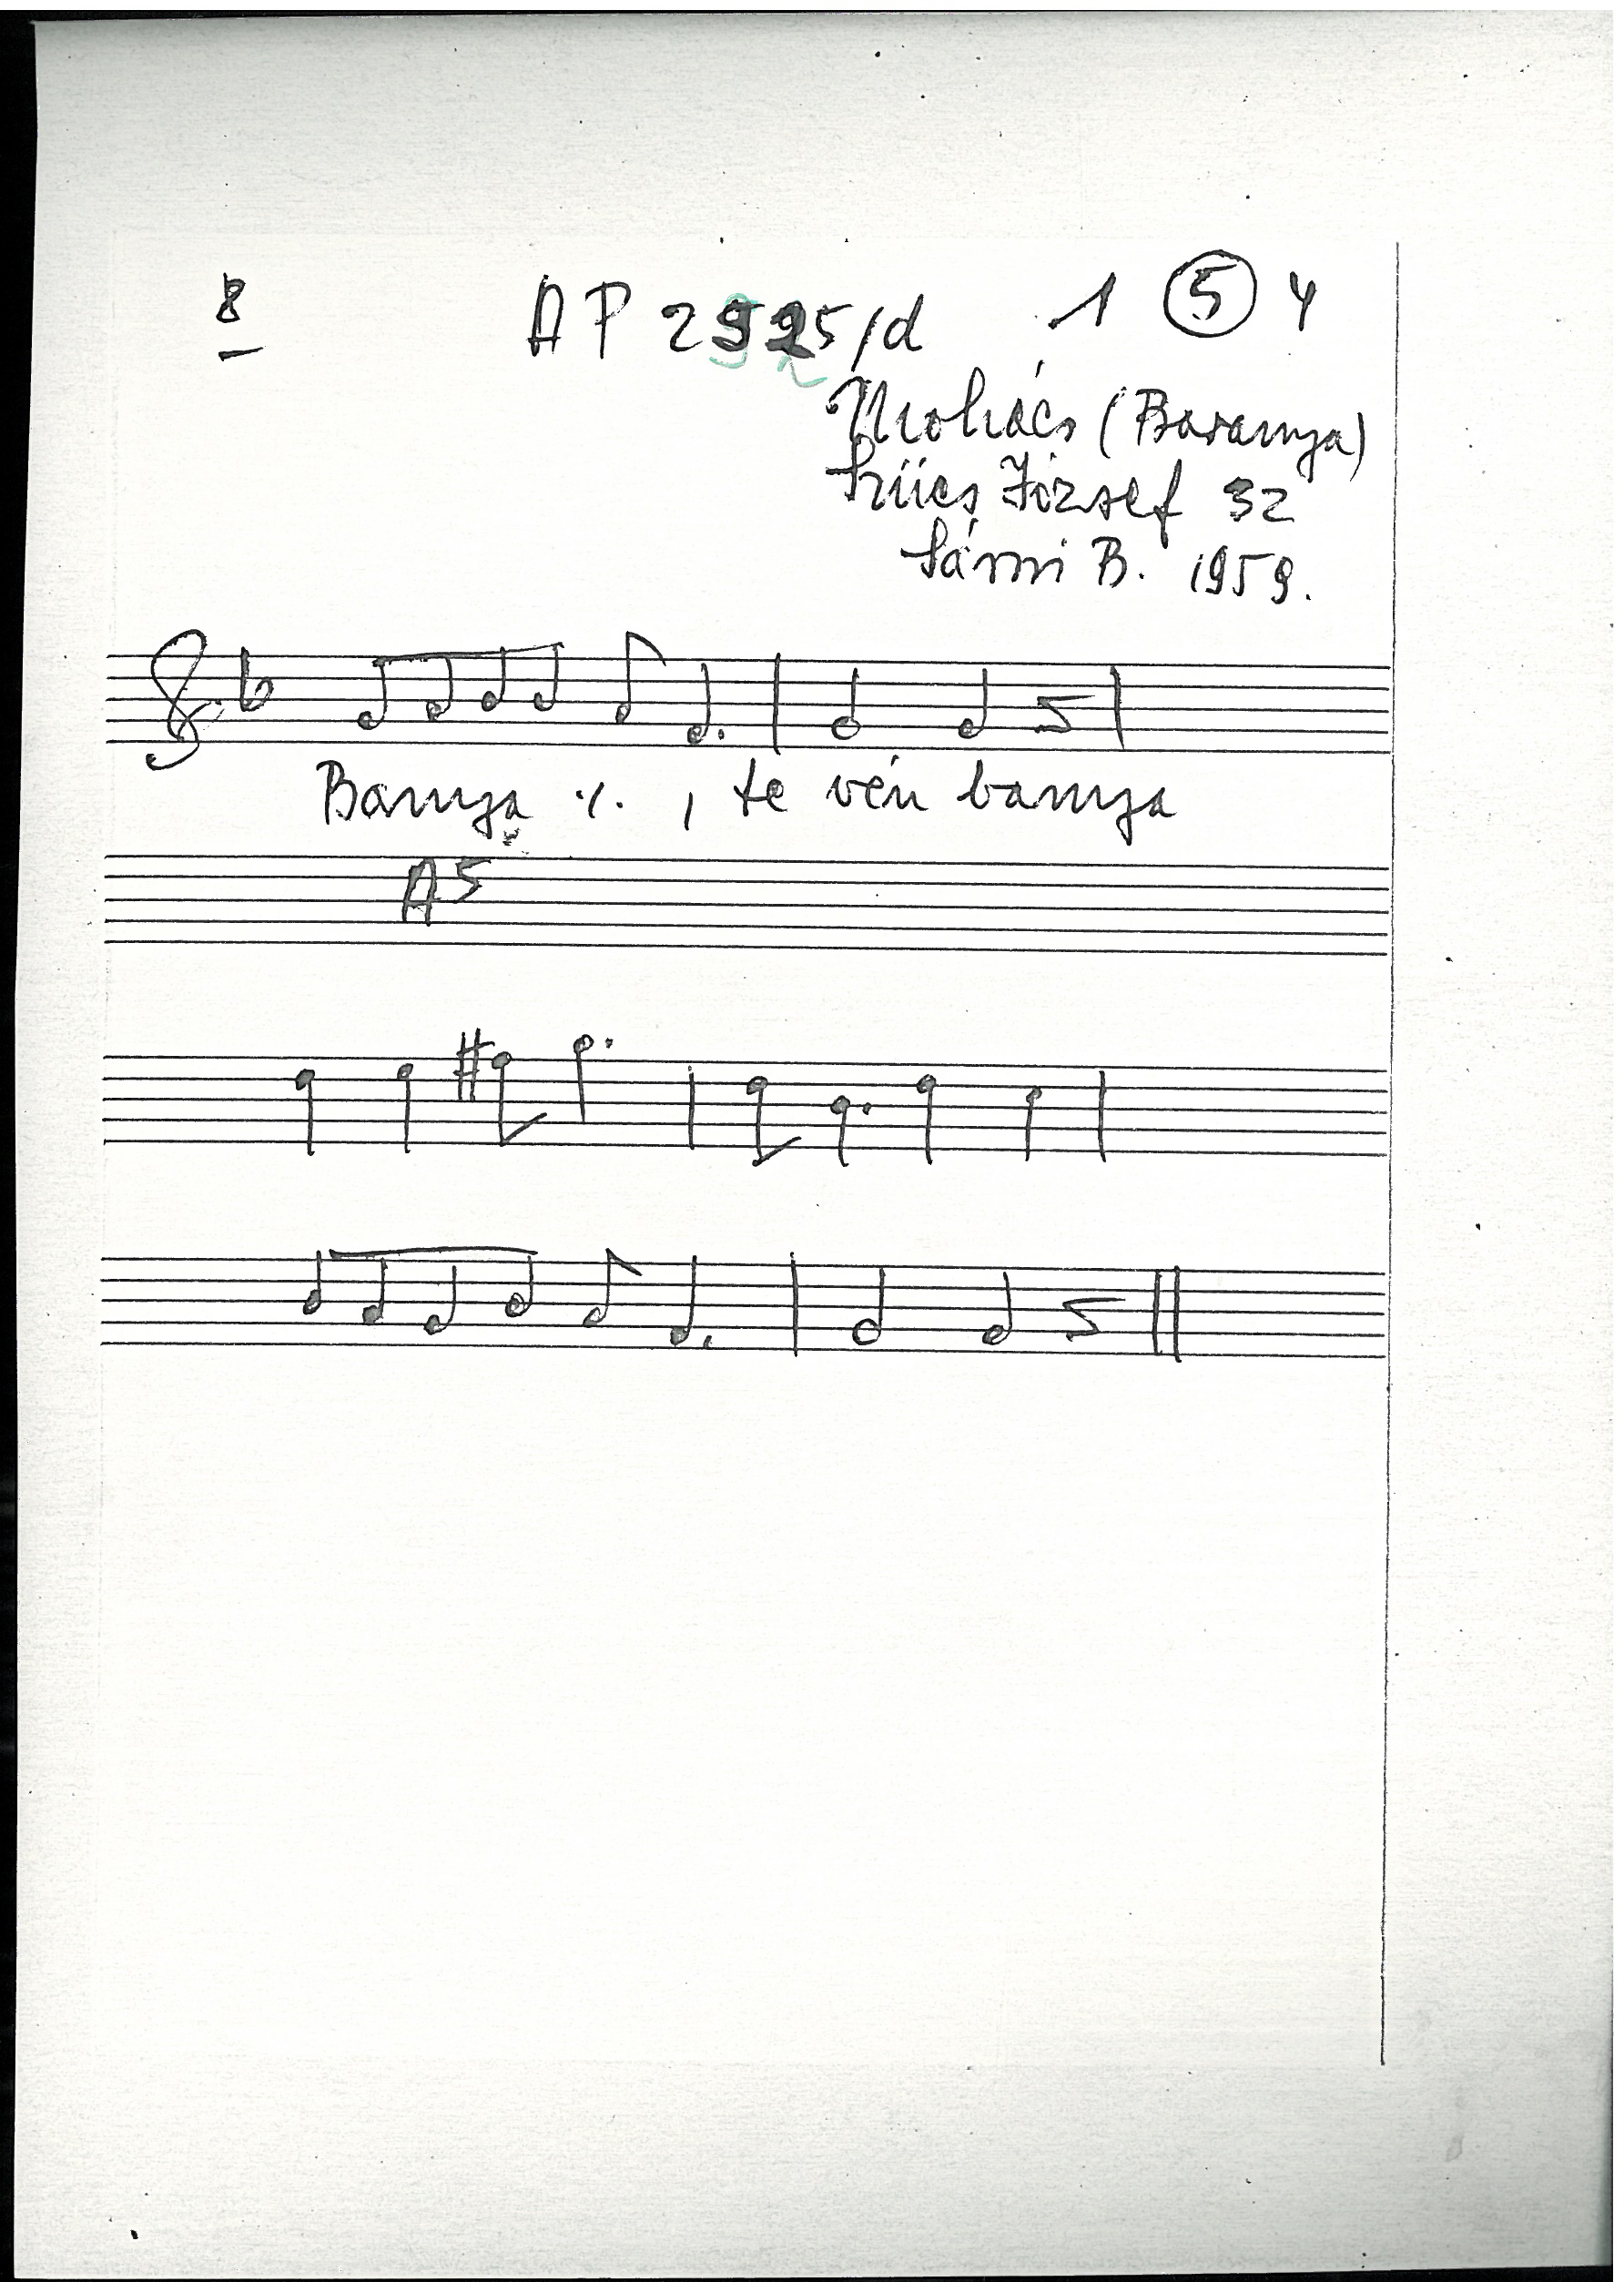 8 AP 2925/d 1 5 4
Mohács (Baranya)
Szűcs József 32
Sárosi B. 1959.
Banya ·/. , te vén banya
A5